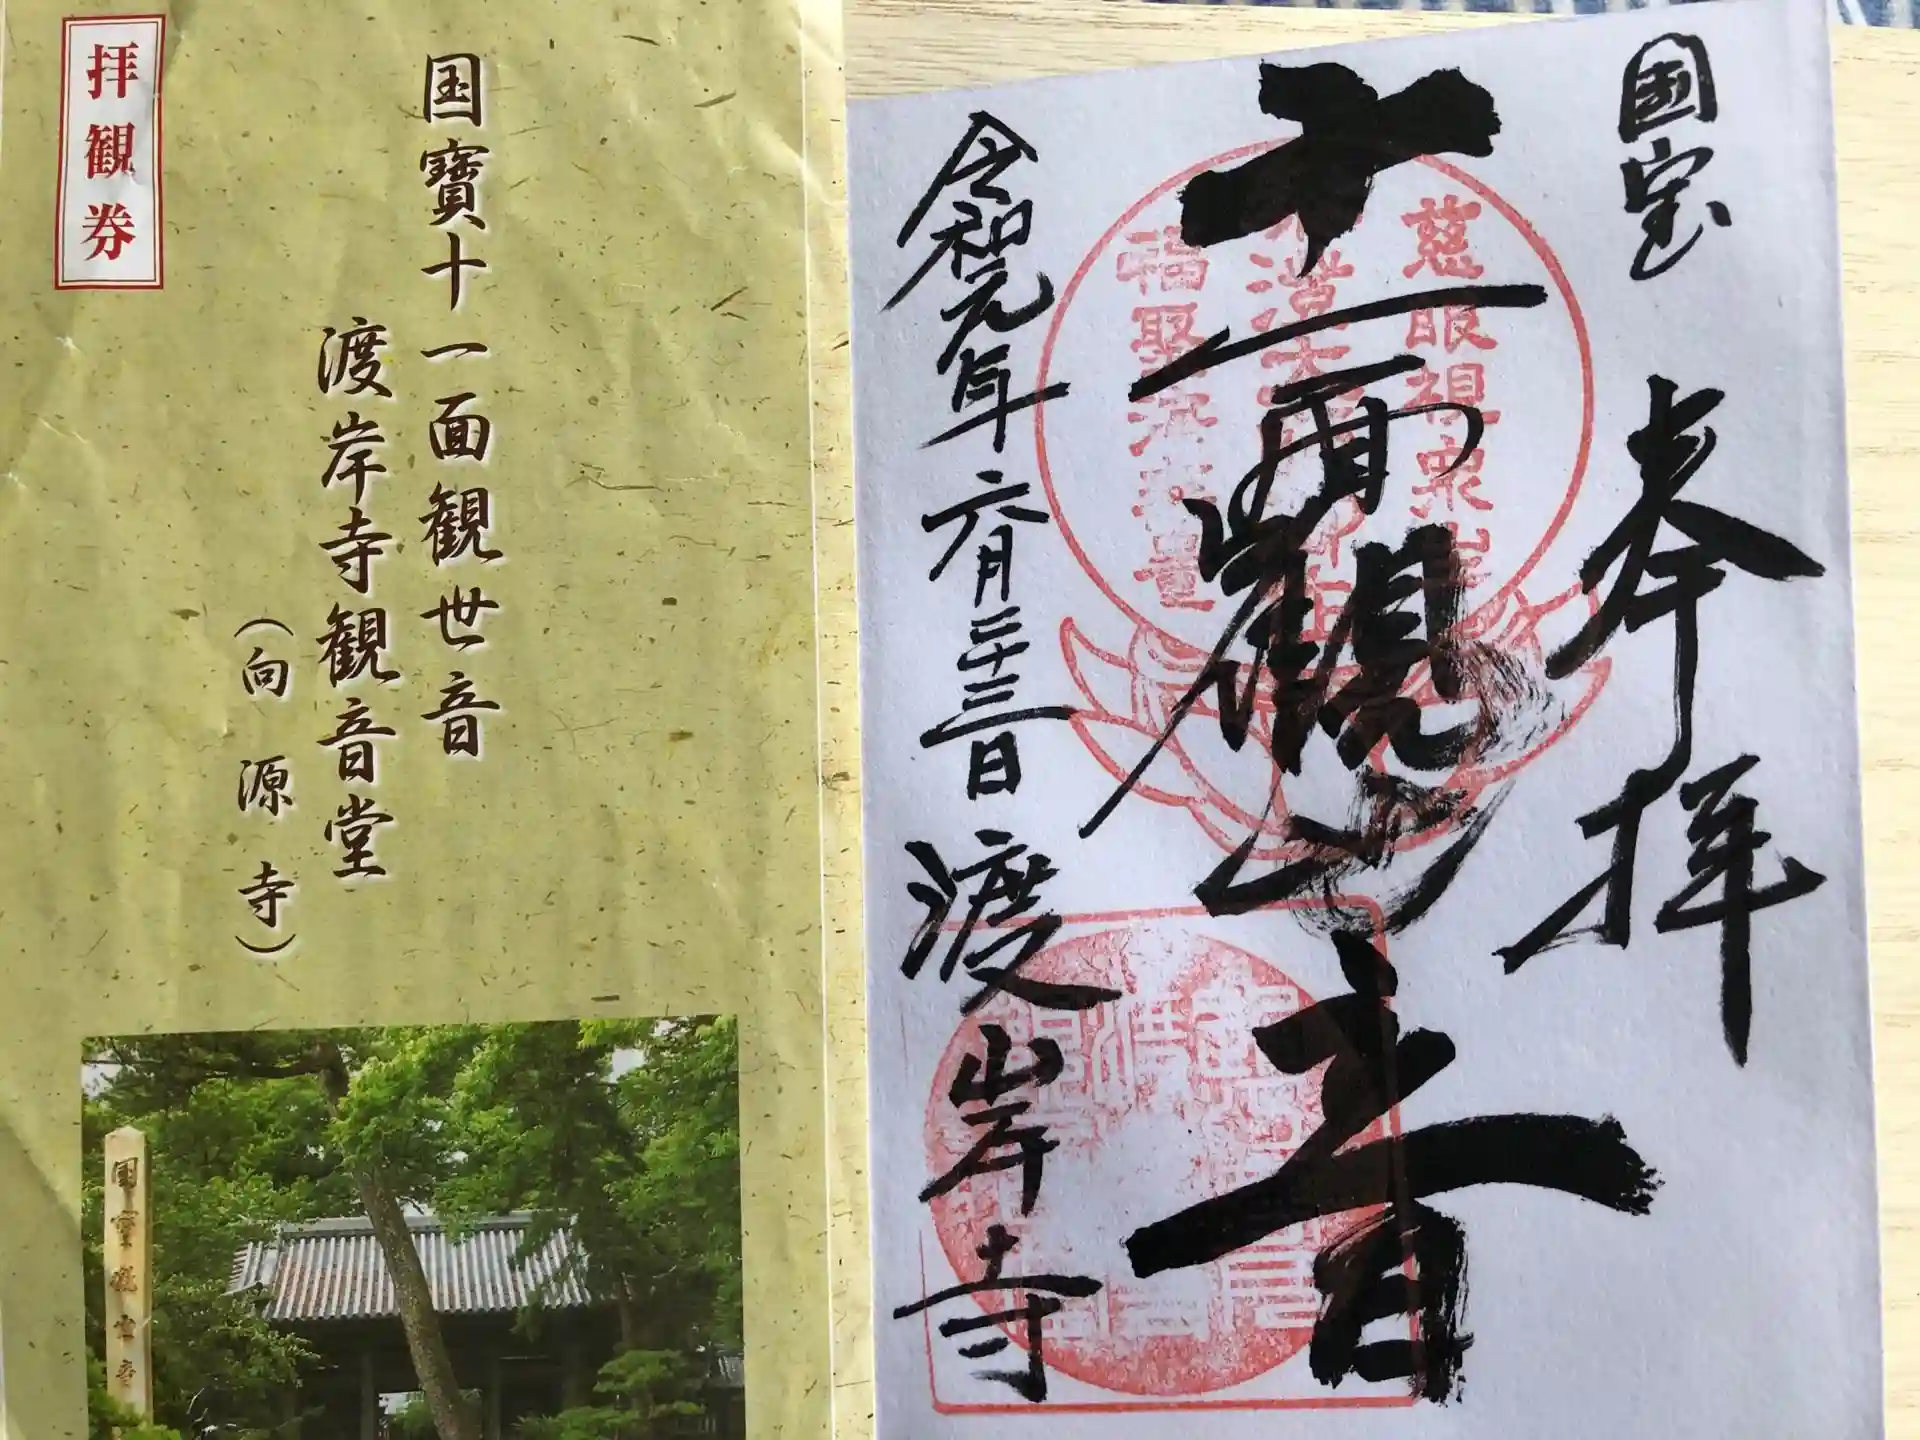 拝観券
国寳十一面観世音
渡岸寺観音堂
（向源寺）
國寳観世音
国宝
奉拝
十一面観世音
令和元年六月二十三日
渡岸寺
慈眼視衆生
福聚海無量